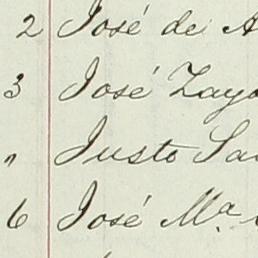 2 José de A
3 José Zayo
" Justo Sa
6 José Mª